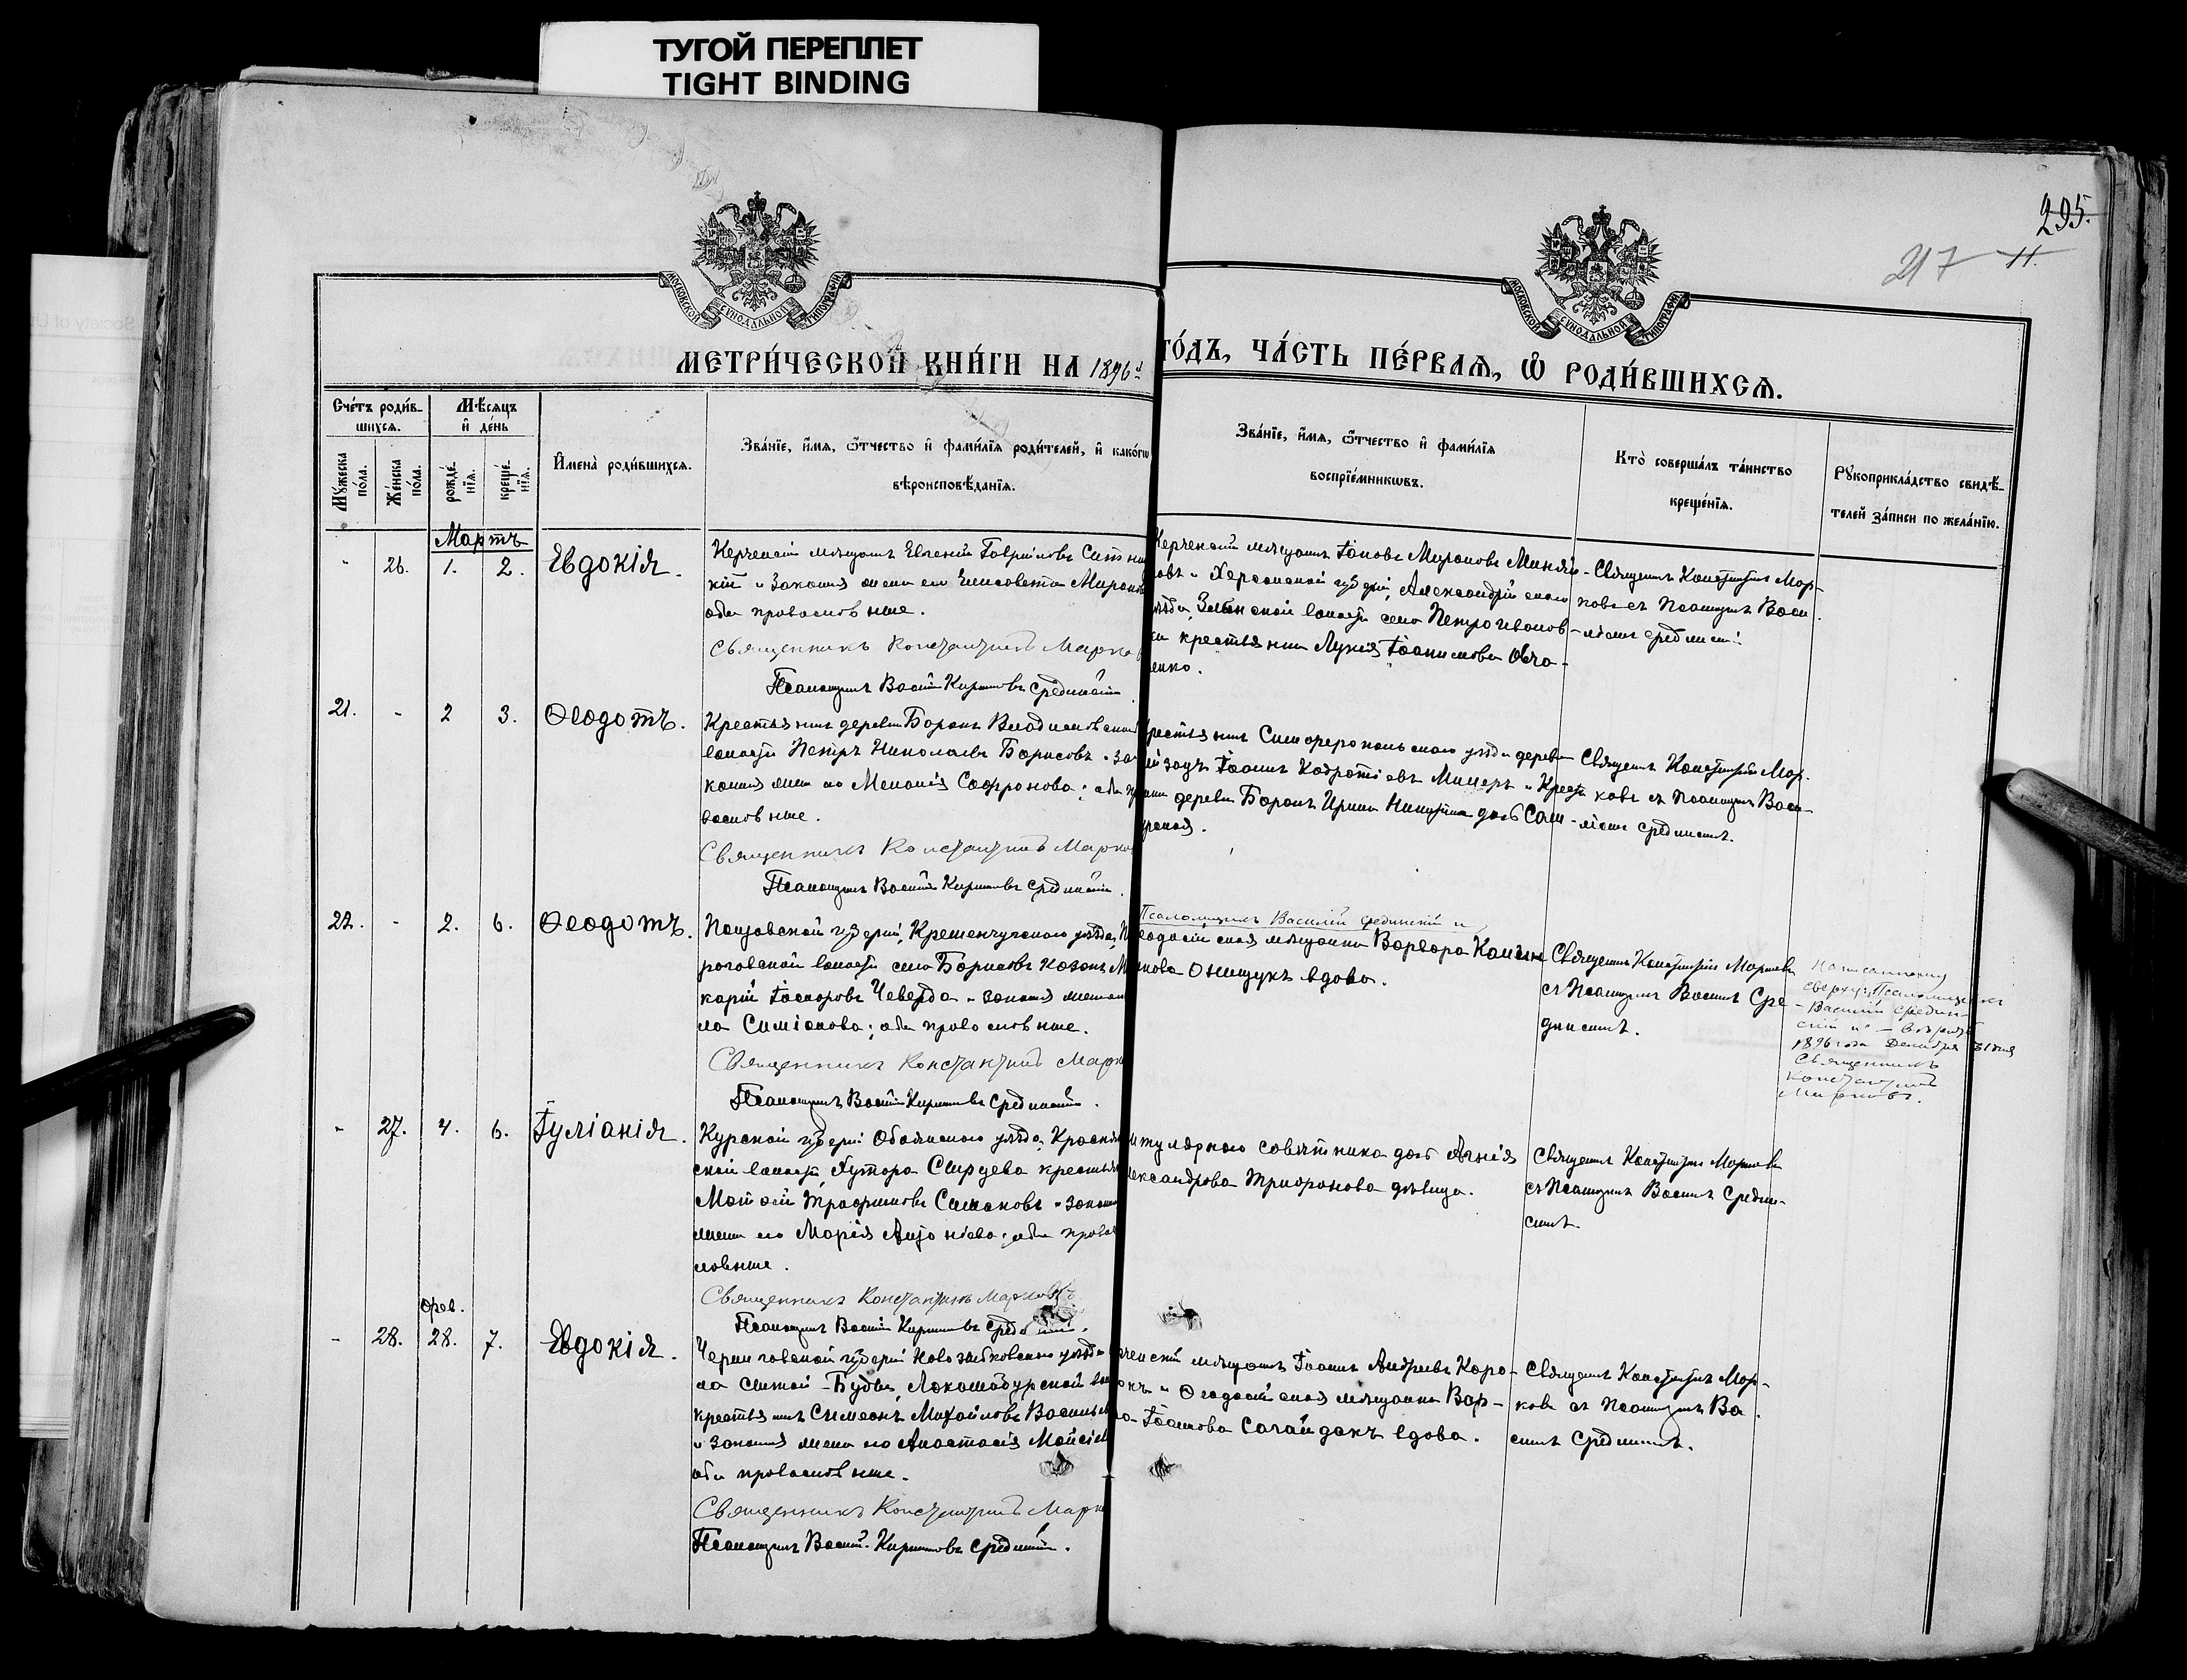 ТУГОЙ ПЕРЕПЛЕТ
TIGHT BINDING
295.
217
11.
МОСКОВСКОЙ СУНОДАЛЬНОЙ ТИПОГРАФІИ
МОСКОВСКОЙ СУНОДАЛЬНОЙ ТИПОГРАФІИ
МЕТРИ́ЧЕСКОЙ КНИ́ГИ НА 1896й
ГО́ДЪ, ЧА́СТЬ ПЕ́РВАѦ, Ѽ РОДИ́ВШИХСѦ.
Сче́тъ роди́в-
шихсѧ.
Мѣ́сѧцъ
и҆ де́нь
Мꙋ́жеска по́ла.
Же́нска по́ла.
рожде́-
нїѧ.
креще́-
нїѧ.
И҆мена̀ роди́вшихсѧ.
Зва́нїе, и҆́мѧ, ѻ҆́тчество и҆ фами́лїѧ роди́телей, и҆ како́гѡ
вѣроисповѣ́данїѧ.
Зва́нїе, и҆́мѧ, ѻ҆́тчество и҆ фами́лїѧ
воспрїе́мникѡвъ.
Кто̀ соверша́лъ та́инство
креще́нїѧ.
Рꙋкоприкла́дство свидѣ́-
телей за́писи по жела́нїю.
Мартъ
- 26. 1. 2. Евдокія.
Керченскій мѣщанинъ Евгеній Гавріиловъ Ситни
кій и законная жена его Елисавета Миронов
оба православные.
Священникъ Константинъ Марко
Псаломщикъ Василій Кирилловъ Срединскій
Керченскій мѣщанинъ Іаковъ Мироновъ Миняй-
ковъ и Херсонской губерніи, Александрійскаго
уѣзда, волости села Петро Иванов-
ки крестьянка Лукія Іоакимова Овча-
енко.
Священникъ Константинъ Мар-
ковъ съ Псаломщикомъ Васи-
ліемъ Срединскимъ
21. - 2 3. Ѳеодотъ.
Крестьянинъ деревни Баракъ Владиславской
волости Петръ Николаевъ Борисовъ и за
конная жена его Меланія Софронова; оба п
вославные.
Священникъ Константинъ Марко
Псаломщикъ Василій Кирилловъ Срединскій.
рестьянинъ Симферопольскаго уѣзда деревни
Іоаннъ Кодратіевъ Мицеръ и Крест
янка деревни Баракъ Ирина Никитина дочь Сам-
урская.
Священникъ Константинъ Мар-
ковъ съ Псаломщикомъ Васи-
ліемъ Срединскимъ.
22. - 2. 6. Ѳеодотъ.
Полтавской губерніи, Кременчугскаго уѣзда, П
роговской волости села Борисовъ козакъ М
карій Іосифовъ Чеверда и законная жена
ла Симіонова; оба православные.
Священникъ Константинъ Марк
Псаломщикъ Василій Кирилловъ Срединскій.
Псаломщикъ Василій Срединскій и
еодосійская мѣщанка Варвара
Онищукъ вдова.
Священникъ Константинъ Марковъ
съ Псаломщикомъ Василіемъ Сре-
динскимъ.
Написанному
сверху: Псаломщикъ
- Василій Средин-
скій и" - вѣрить
1896 года Декабря 31 дня
Священникъ
Константинъ
Марковъ.
- 27. 4. 6. Іуліанія.
Курской губерніи Обоянскаго уѣзда, Красня
ской волости, Хутора крестьян
Матѳей Трофимовъ Симаковъ и законн
жена его Марія оба право
славные.
Священникъ Константинъ Марковъ
Псаломщикъ Василій Кирилловъ Срединскій.
итулярнаго совѣтника дочь Агнія
лександрова Трифонова дѣвица.
Священникъ Константинъ Марковъ
съ Псаломщикомъ Василіемъ Средин-
скимъ.
Фев.
- 28. 28. 7. Евдокія.
Черниговской губерніи Новозыбковскаго уѣзда
ла Святой-Буды,
крестьянинъ Симеонъ Михайловъ Васильев
и законная жена его Анастасія Моисіев
оба православные.
Священникъ Константинъ Марк
Псаломщикъ Василій Кирилловъ Срединскій.
рченскій мѣщанинъ Іоаннъ Андреевъ Каро-
Ѳеодосійская мѣщанка Вар-
ра Іоаннова Сагайдакъ вдова.
Священникъ Константинъ Мар-
ковъ съ Псаломщикомъ Ва
силіемъ Срединскимъ.